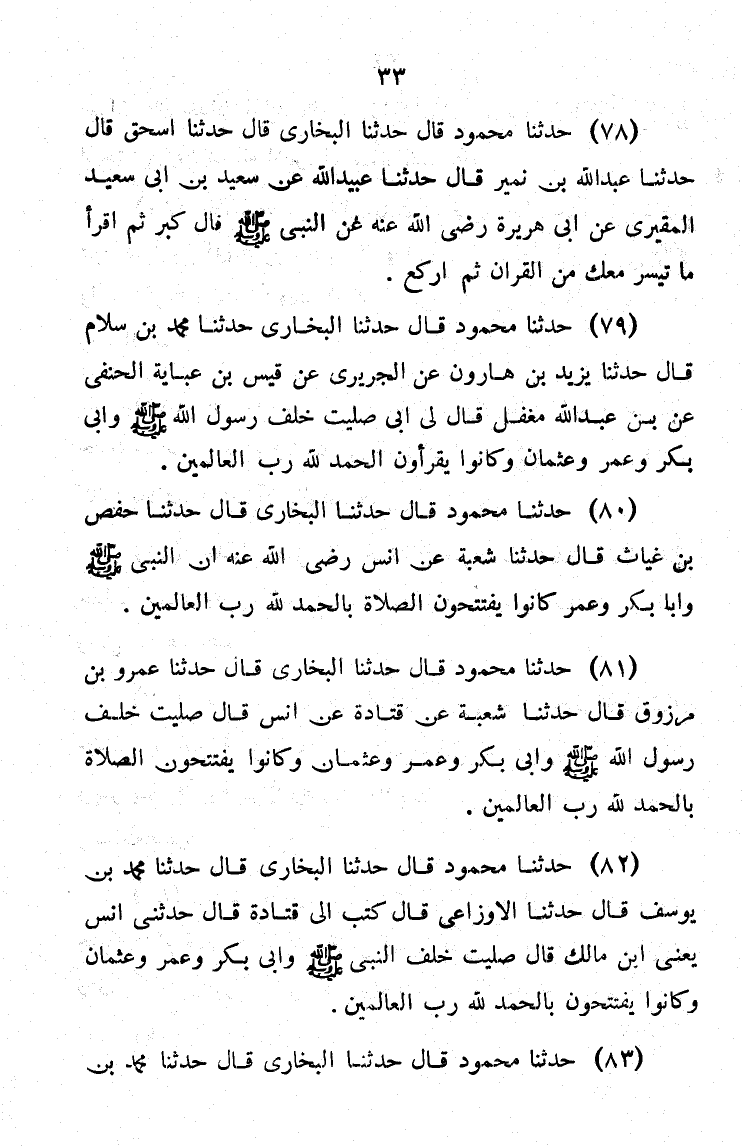 ٣٣
(٧٨) حدثنا محمود قال حدثنا البخارى قال حدثنا اسحق قال
حدثنا عبدالله بن نمير قال حدثنا عبيدالله عن سعيد بن ابى سعيد
المقبرى عن ابى هريرة رضى الله عنه عن النبى ﷺ قال كبر ثم اقرأ
ما تيسر معك من القران ثم اركع .
(٧٩) حدثنا محمود قال حدثنا البخارى حدثنا محمد بن سلام
قال حدثنا يزيد بن هارون عن الجريرى عن قيس بن عباية الحنفى
عن بن عبدالله مغفل قال لى ابى صليت خلف رسول الله ﷺ وابى
بكر وعمر وعثمان وكانوا يقرأون الحمد لله رب العالمين .
(٨٠) حدثنا محمود قال حدثنا البخارى قال حدثنا حفص
بن غياث قال حدثنا شعبة عن انس رضى الله عنه ان النبى ﷺ
وابا بكر وعمر كانوا يفتتحون الصلاة بالحمد لله رب العالمين .
(٨١) حدثنا محمود قال حدثنا البخارى قال حدثنا عمرو بن
مرزوق قال حدثنا شعبة عن قتادة عن انس قال صليت خلف
رسول الله ﷺ وابى بكر وعمر وعثمان وكانوا يفتتحون الصلاة
بالحمد لله رب العالمين .
(٨٢) حدثنا محمود قال حدثنا البخارى قال حدثنا محمد بن
يوسف قال حدثنا الاوزاعى قال كتب الى قتادة قال حدثنى انس
يعنى ابن مالك قال صليت خلف النبى ﷺ وابى بكر وعمر وعثمان
وكانوا يفتتحون بالحمد لله رب العالمين .
(٨٣) حدثنا محمود قال حدثنا البخارى قال حدثنا محمد بن